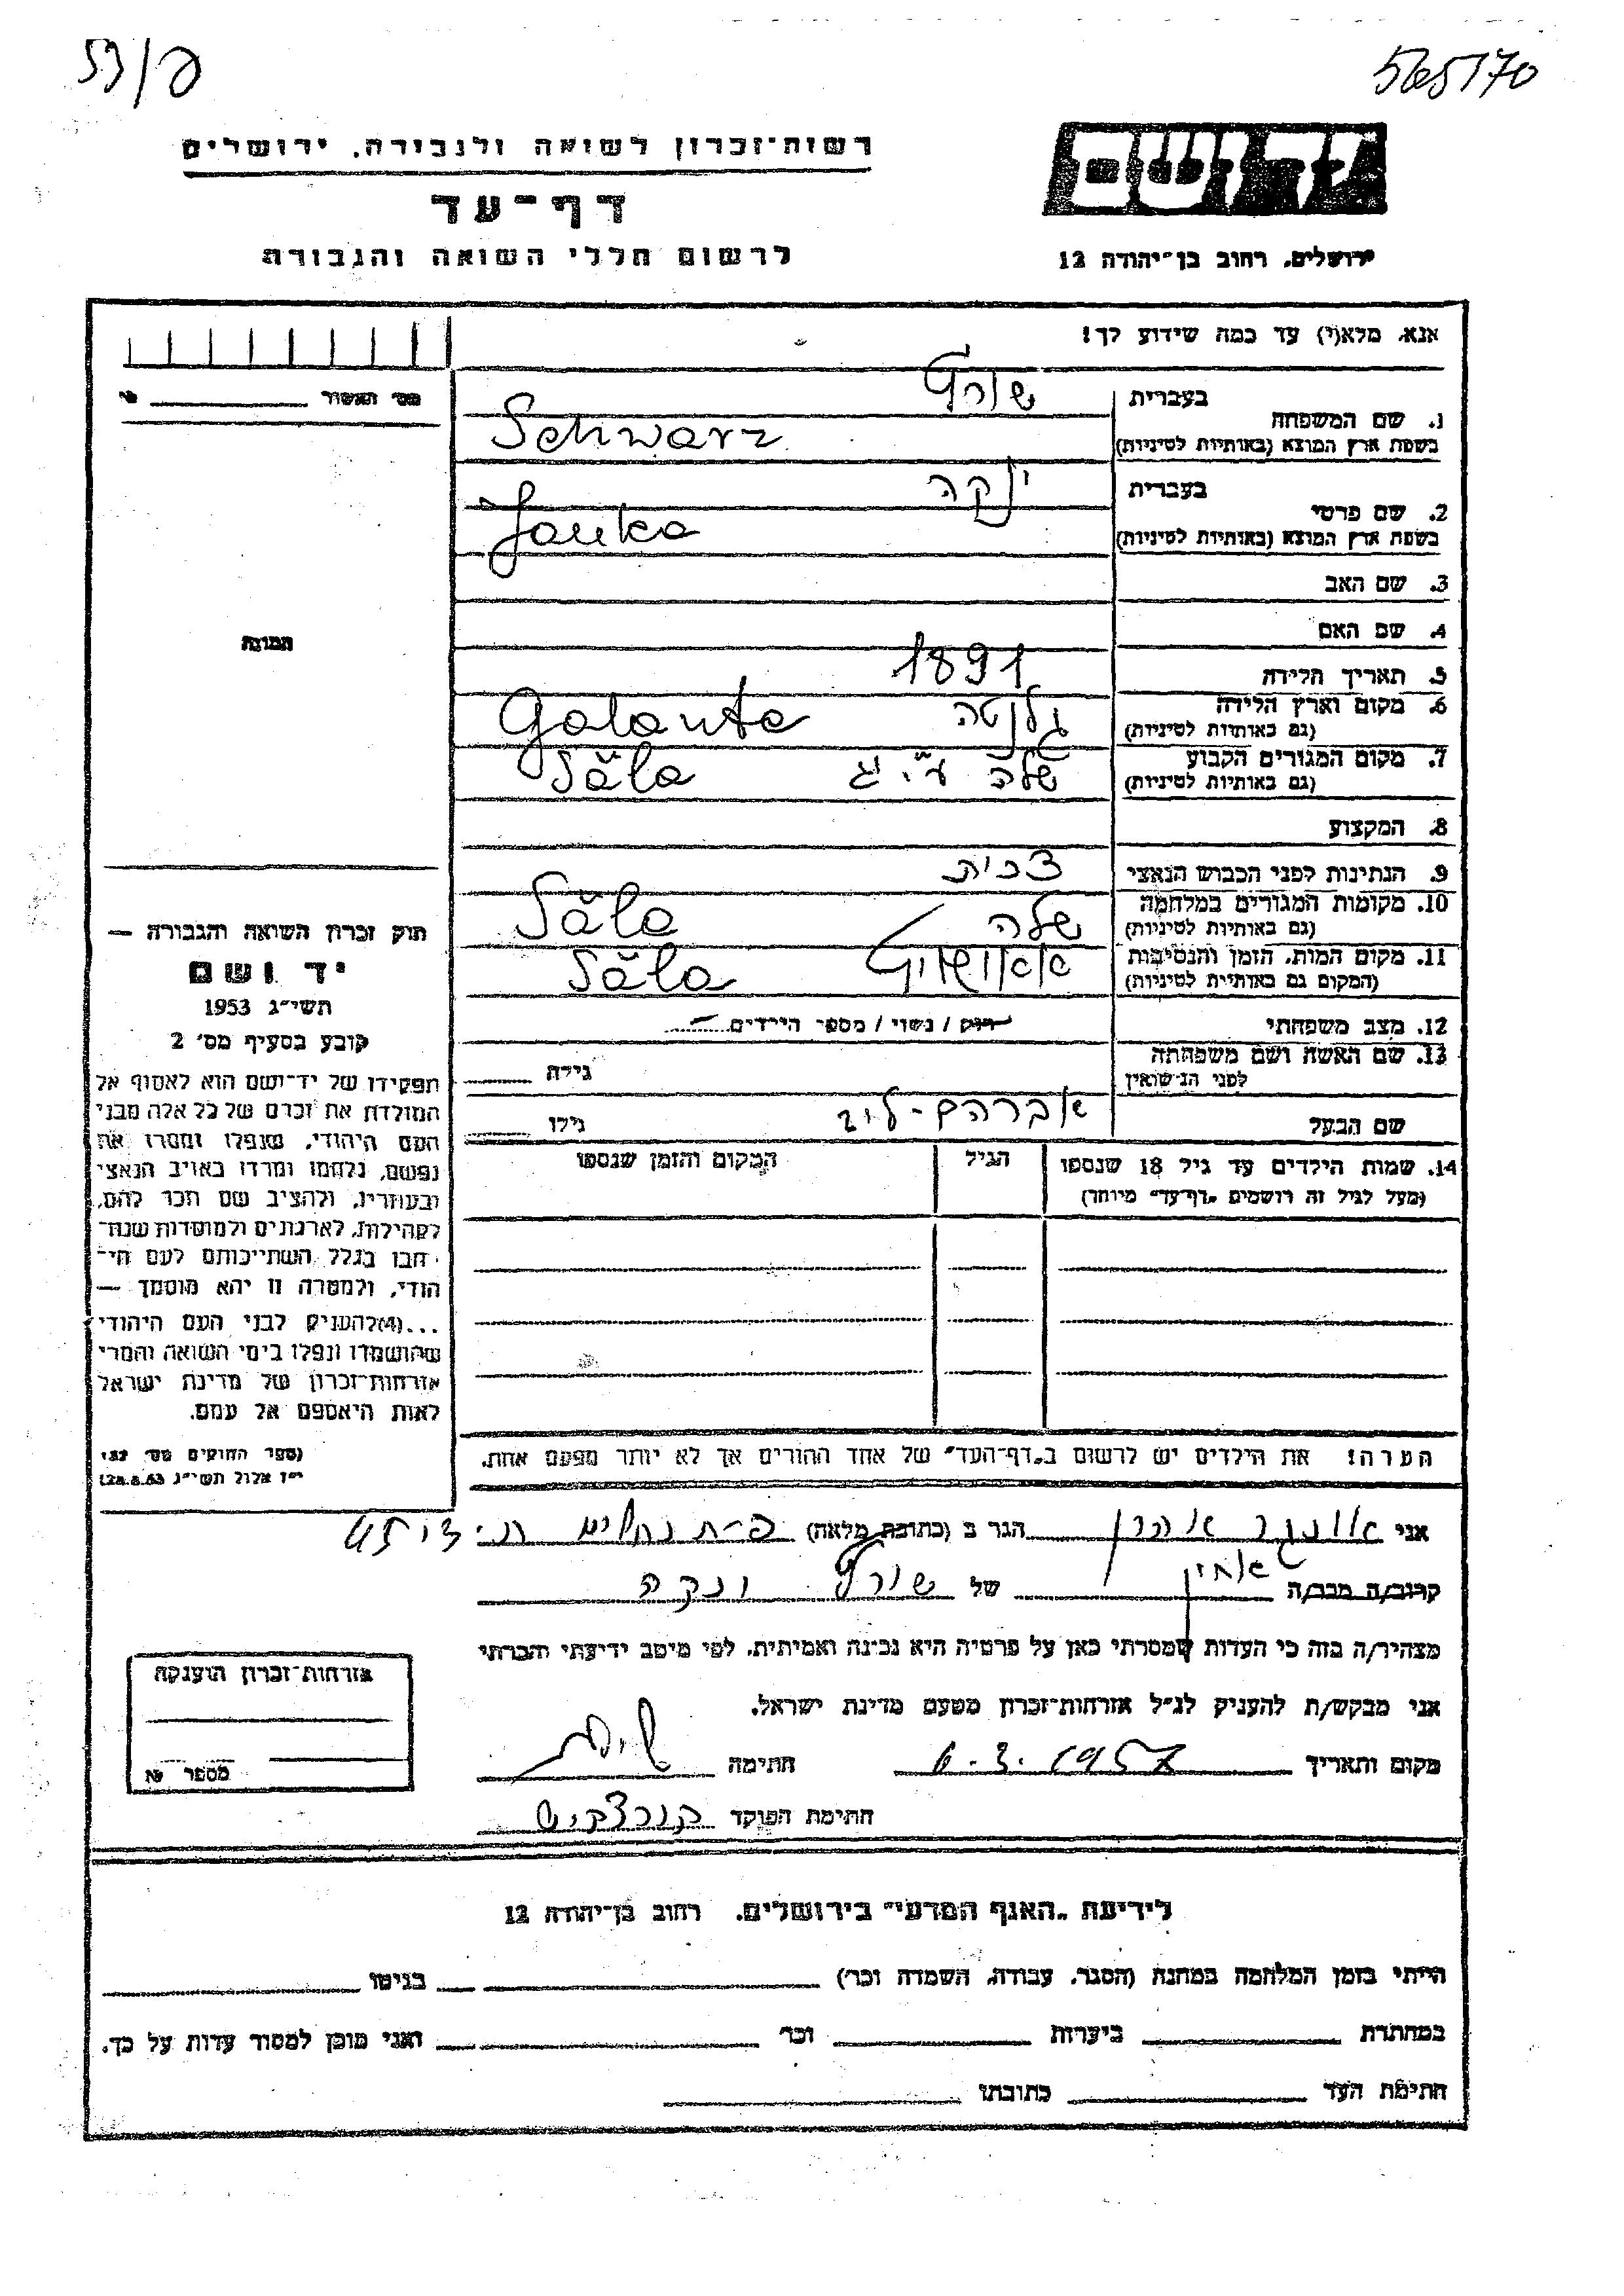 565170
רשות־זכרון לשואה ולגבורה, ירושלים
דף־עד
לרשום חללי השואה והגבורה
ירושלים, רחוב בן־יהודה 12
אנא, מלא(י) עד כמה שידוע לך!
מס׳ האשור
תמונה
1. שם המשפחה
בעברית שורץ
בשפת ארץ המוצא (באותיות לטיניות) Schwarz
2. שם פרטי
בעברית ינקה
בשפת ארץ המוצא (באותיות לטיניות) Janka
3. שם האב
4. שם האם
5. תאריך הלידה 1891
6. מקום וארץ הלידה (גם באותיות לטיניות) גלנטה Galanta
7. מקום המגורים הקבוע (גם באותיות לטיניות) שלה Šăla
8. המקצוע
9. הנתינות לפני הכבוש הנאצי צ׳כית
10. מקומות המגורים במלחמה (גם באותיות לטיניות) שלה Šăla
11. מקום המות, הזמן והנסיבות (המקום גם באותיות לטיניות) אאושויץ Šăla
12. מצב משפחתי רווק / נשוי / מספר הילדים
13. שם האשה ושם משפחתה לפני הנישואין גילה
שם הבעל אברהם-ליב גילו
14. שמות הילדים עד גיל 18 שנספו הגיל המקום והזמן שנספו
(מעל לגיל זה רושמים „דף־עד” מיוחד)
הערה! את הילדים יש לרשום ב„דף־העד” של אחד ההורים אך לא יותר מפעם אחת.
חוק זכרון השואה והגבורה —
יד ושם
תשי״ג 1953
קובע בסעיף מס׳ 2
תפקידו של יד־ושם הוא לאסוף אל
המולדת את זכרם של כל אלה מבני
העם היהודי, שנפלו ומסרו את
נפשם, נלחמו ומרדו באויב הנאצי
ובעוזריו, ולהציב שם וזכר להם,
לקהילות, לארגונים ולמוסדות שנח־
רבו בגלל השתייכותם לעם הי־
הודי, ולמטרה זו יהא מוסמך —
...(4) להעניק לבני העם היהודי
שהושמדו ונפלו בימי השואה והמרי
אזרחות־זכרון של מדינת ישראל
לאות היאספם אל עמם.
(ספר החוקים מס׳ 132
י״ז אלול תשי״ג 28.8.53)
אני אונגר אהרן הגר ב (כתובת מלאה)
קרוב/ה מכר/ה אחיין של שורץ ינקה
מצהיר/ה בזה כי העדות שמסרתי כאן על פרטיה היא נכונה ואמיתית, לפי מיטב ידיעתי והכרתי
אני מבקש/ת להעניק לנ״ל אזרחות־זכרון מטעם מדינת ישראל.
מקום ותאריך 6.3.1957 חתימה
חתימת הפוקד
אזרחות־זכרון הוענקה
מספר
לידיעת „האגף המדעי” בירושלים, רחוב בן־יהודה 12
הייתי בזמן המלחמה במחנה (הסגר, עבודה, השמדה וכו׳) בגיטו
במחתרת ביערות וכו׳ ואני מוכן למסור עדות על כך.
חתימת העד כתובתו